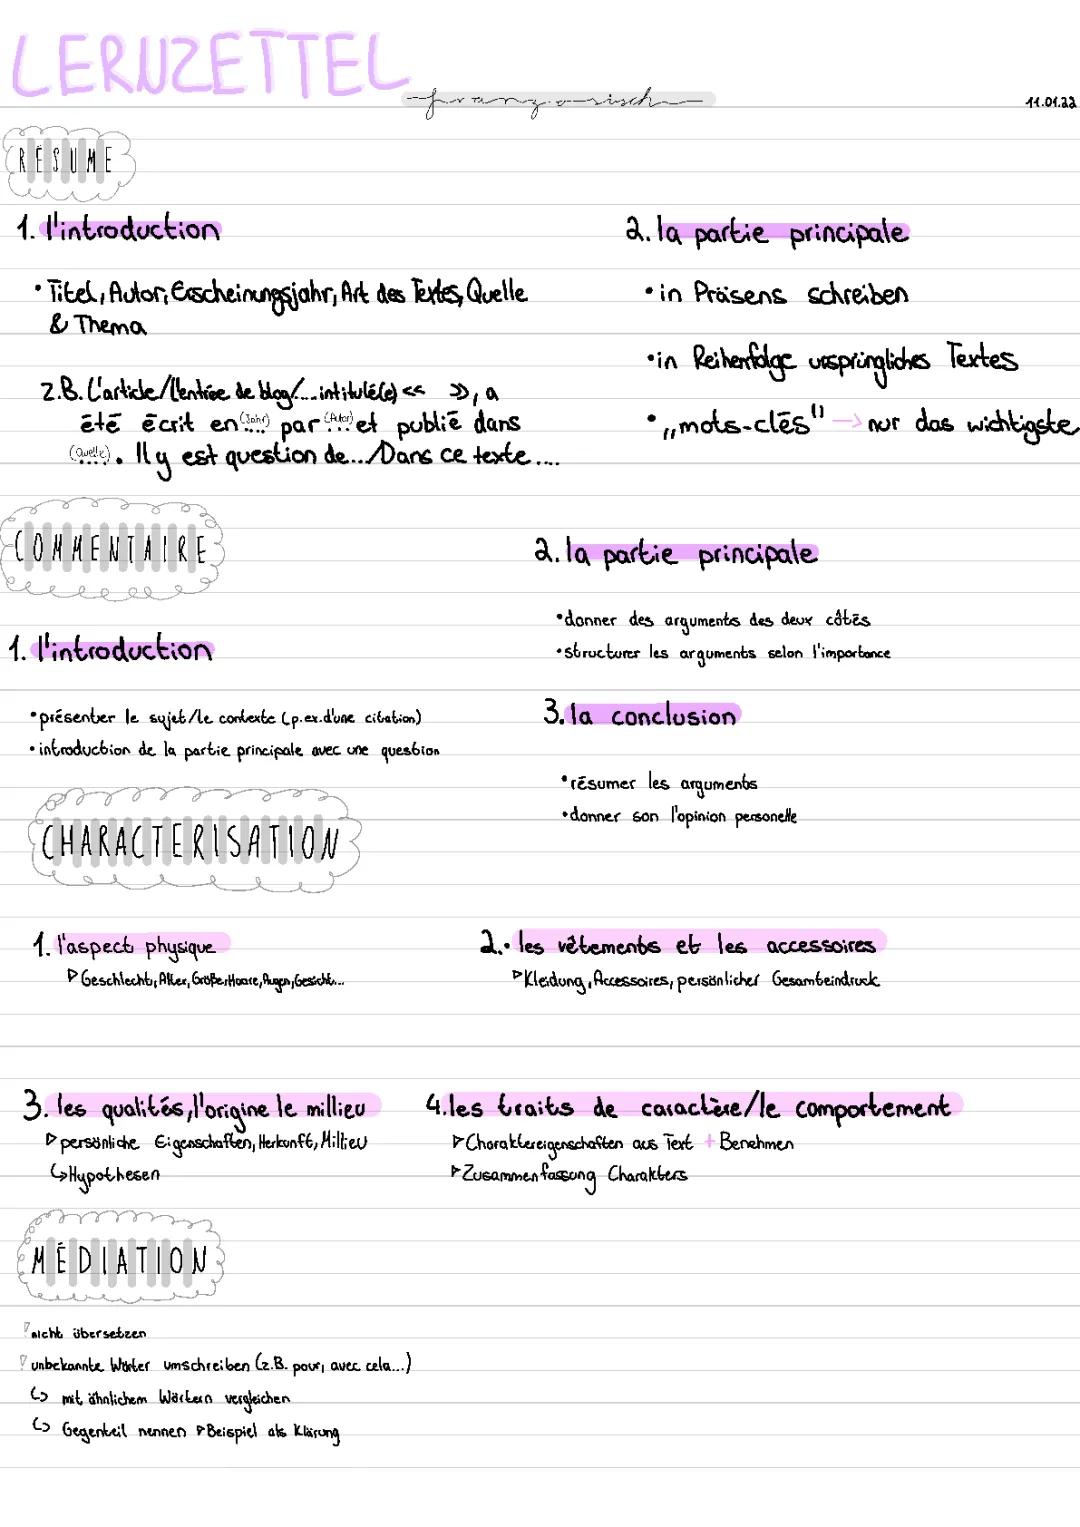 LERNZETTEL
französisch
11.01.22
RÉSUMÉ
1. l'introduction
• Titel, Autor, Erscheinungsjahr, Art des Textes, Quelle
& Thema
z.B. L'article/l'entrée de blog/... intitulé(e) << >>, a
été écrit en (Jahr) .... par (Autor) .... et publié dans
(Quelle) ..... Il y est question de.../Dans ce texte ....
2. la partie principale
• in Präsens schreiben
• in Reihenfolge ursprüngliches Textes
• „mots-clés" → nur das wichtigste
COMMENTAIRE
1. l'introduction
• présenter le sujet/le contexte (p.ex. d'une citation)
• introduction de la partie principale avec une question
2. la partie principale
• donner des arguments des deux côtés
• structurer les arguments selon l'importance
3. la conclusion
• résumer les arguments
• donner son l'opinion personelle
CHARACTERISATION
1. l'aspect physique
▷ Geschlecht, Alter, Größe, Haare, Augen, Gesicht...
2. les vêtements et les accessoires
▷ Kleidung, Accessoires, persönlicher Gesamteindruck
3. les qualités, l'origine le millieu
▷ persönliche Eigenschaften, Herkunft, Millieu
↳ Hypothesen
4. les traits de caractère/le comportement
▷ Charaktereigenschaften aus Text + Benehmen
▷ Zusammenfassung Charakters
MÉDIATION
▷ nicht übersetzen
▷ unbekannte Wörter umschreiben (z.B. pour, avec cela...)
↳ mit ähnlichem Wörtern vergleichen
↳ Gegenteil nennen ▷ Beispiel als Klärung